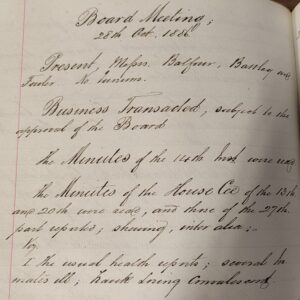 Board Meeting,
28th Oct. 1886
Present, Messrs. Balfour, Barclay and
Fowler No Quorum.
Business Transacted, subject to the
approval of the Board
The Minutes of the 14th Inst. were read
The Minutes of the House Cee of the 13th
and 20th were read, and those of the 27th
part reported; shewing, inter alia:-
1 The usual health reports; several In-
mates ill;